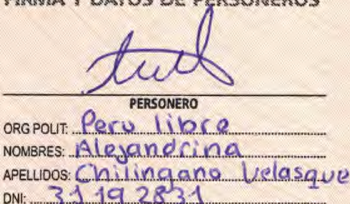 FIRMA Y DATOS DE PERSONEROS
PERSONERO
ORG POLIT: Peru libre
NOMBRES: Alejandrina
APELLIDOS: Chilingano Velasque
DNI: 31192831